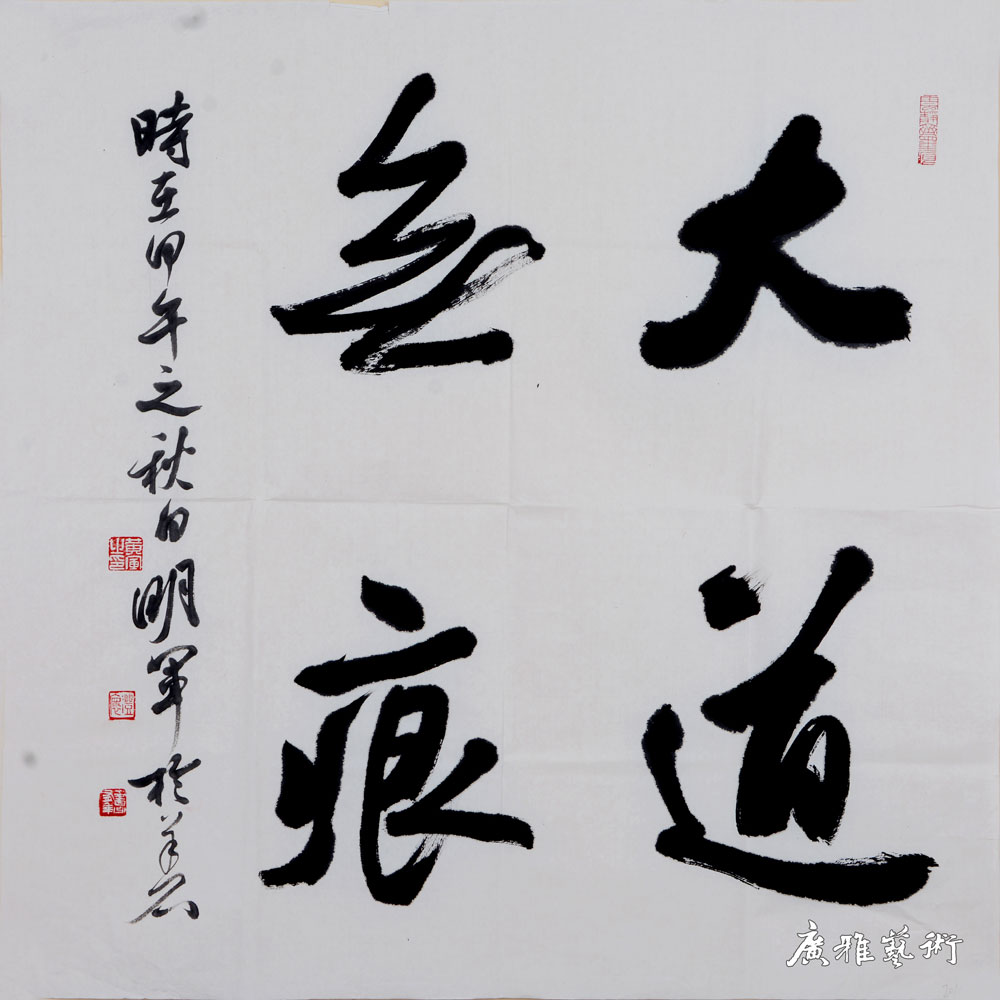 大道
無痕
時在甲午之秋日明軍於羊石
廣雅藝術